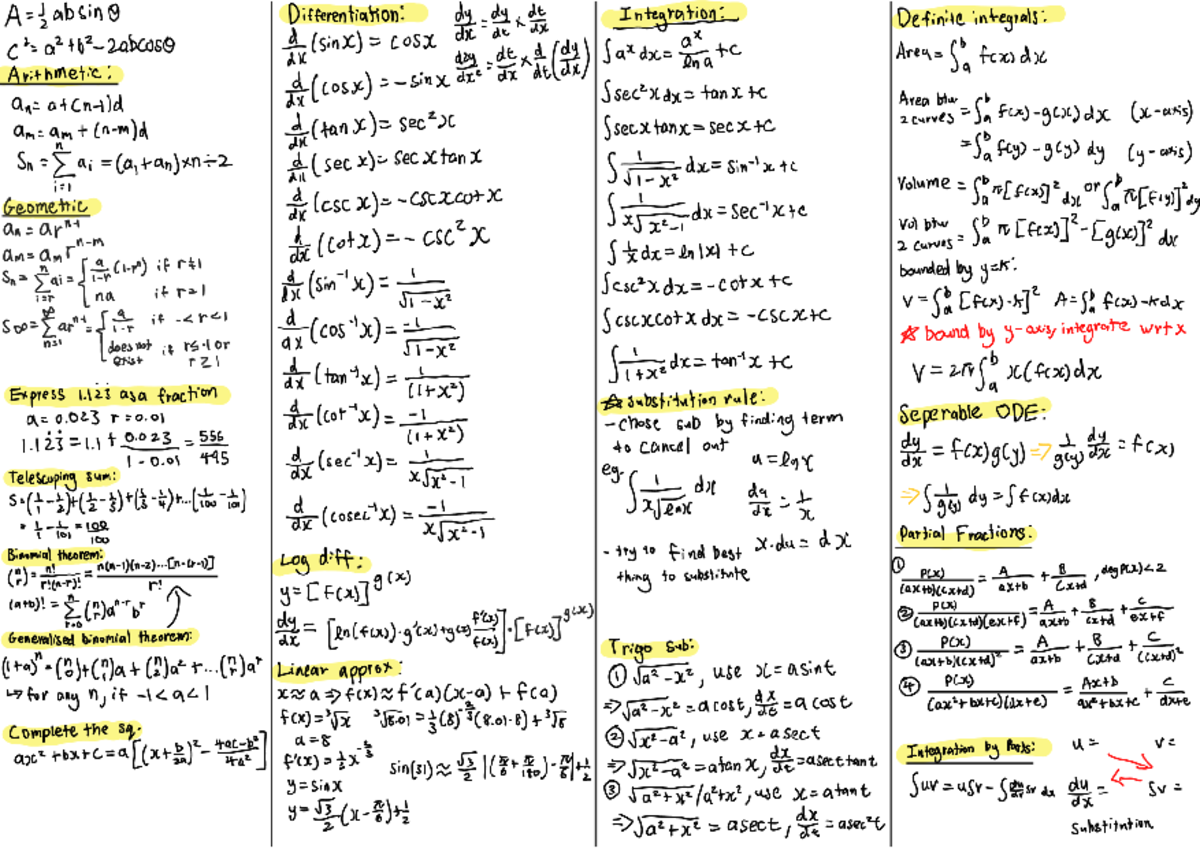 A = ½ ab sin θ
c² = a² + b² - 2abcosθ
Arithmetic:
aₙ = a + (n-1)d
aₘ = aₘ + (n-m)d
Sₙ = Σᵢ₌₁ⁿ aᵢ = (a₁ + aₙ) × n ÷ 2
Geometric
aₙ = arⁿ⁻¹
aₘ = aₘ rⁿ⁻ᵐ
if r≠1
na if r=1
does not exist if r≤-1 or r≥1
Express 1.123 as a fraction
a = 0.023 r = 0.01
1.123 = 1.1 + 0.023/(1 - 0.01) = 556/495
Telescoping sum:
S = (1/1 - 1/2) + (1/2 - 1/3) + (1/3 - 1/4) + ... (1/100 - 1/101)
= 1/1 - 1/101 = 100/100
Binomial theorem:
(n r) = n!/(r!(n-r)!) = n(n-1)(n-2)...[n-(r-1)]/r!
(a+b)! = Σᵣ₌₀ⁿ (n r) aⁿ⁻ʳ bʳ
Generalised binomial theorem:
(1+a)ⁿ = (n 0) + (n 1)a + (n 2)a² + ... (n r)aʳ
↳ for any n, if -1 < a < 1
Complete the sq.
ax² + bx + c = a[(x + b/2a)² - (4ac-b²)/4a²]
Differentiation:
dy/dx = dy/dt × dt/dx
d²y/dx² = dt/dx × d/dt (dy/dx)
d/dx (sin x) = cos x
d/dx (cos x) = -sin x
d/dx (tan x) = sec² x
d/dx (sec x) = sec x tan x
d/dx (csc x) = -csc x cot x
d/dx (cot x) = -csc² x
d/dx (sin⁻¹ x) = 1/√(1-x²)
d/dx (cos⁻¹ x) = -1/√(1-x²)
d/dx (tan⁻¹ x) = 1/(1+x²)
d/dx (cot⁻¹ x) = -1/(1+x²)
d/dx (sec⁻¹ x) = 1/(x√(x²-1))
d/dx (cosec⁻¹ x) = -1/(x√(x²-1))
Log diff:
y = [f(x)]^g(x)
dy/dx = [ln(f(x))·g'(x) + g(x) f'(x)/f(x)]·[f(x)]^g(x)
Linear approx:
x ≈ a ⇒ f(x) ≈ f'(a)(x-a) + f(a)
f(x) = ³√x ³√8.01 = 1/3 (8)^(-2/3) (8.01-8) + ³√8
a = 8
y = sin x
sin(31) ≈ √3/2 |(π/6 + π/180) - π/6| + 1/2
y = √3/2 (x - π/6) + 1/2
Integration:
∫aˣ dx = aˣ/ln a + c
∫sec² x dx = tan x + c
∫sec x tan x = sec x + c
∫ 1/√(1-x²) dx = sin⁻¹ x + c
∫ 1/(x√(x²-1)) dx = sec⁻¹ x + c
∫ 1/x dx = ln|x| + c
∫csc² x dx = -cot x + c
∫csc x cot x dx = -csc x + c
∫ 1/(1+x²) dx = tan⁻¹ x + c
☆ substitution rule:
- chose sub by finding term
to cancel out
eg. ∫ 1/(x√(ln x)) dx
u = ln x
du/dx = 1/x
x·du = dx
- try to find best
thing to substitute
Trigo sub:
① √(a²-x²), use x = a sin t
⇒ √(a²-x²) = a cos t, dx/dt = a cos t
② √(x²-a²), use x = a sec t
⇒ √(x²-a²) = a tan x, dx/dt = a sec t tan t
③ √(a²+x²) / a²+x², use x = a tan t
⇒ √(a²+x²) = a sec t, dx/dt = a sec² t
Definite integrals:
Area = ∫ₐᵇ f(x) dx
Area btw 2 curves = ∫ₐᵇ f(x) - g(x) dx (x-axis)
= ∫ₐᵇ f(y) - g(y) dy (y-axis)
Volume = ∫ₐᵇ π[f(x)]² dx or ∫ₐᵇ π[f(y)]² dy
Vol btw 2 curves = ∫ₐᵇ π [f(x)]² - [g(x)]² dx
bounded by y=k:
V = ∫ₐᵇ [f(x)-k]² A = ∫ₐᵇ f(x) - k dx
☆ bound by y-axis, integrate wrt x
V = 2π∫ₐᵇ x(f(x) dx
Seperable ODE:
dy/dx = f(x)g(y) ⇒ 1/g(y) dy/dx = f(x)
⇒ ∫ 1/g(y) dy = ∫ f(x) dx
Partial Fractions:
① P(x)/((ax+b)(cx+d)) = A/(ax+b) + B/(cx+d), deg P(x) < 2
② P(x)/((ax+b)(cx+d)(ex+f)) = A/(ax+b) + B/(cx+d) + C/(ex+f)
③ P(x)/((ax+b)(cx+d)²) = A/(ax+b) + B/(cx+d) + C/(cx+d)²
④ P(x)/((ax²+bx+c)(dx+e)) = (Ax+b)/(ax²+bx+c) + C/(dx+e)
Integration by Parts:
u = v =
du/dx = ∫v =
substitution